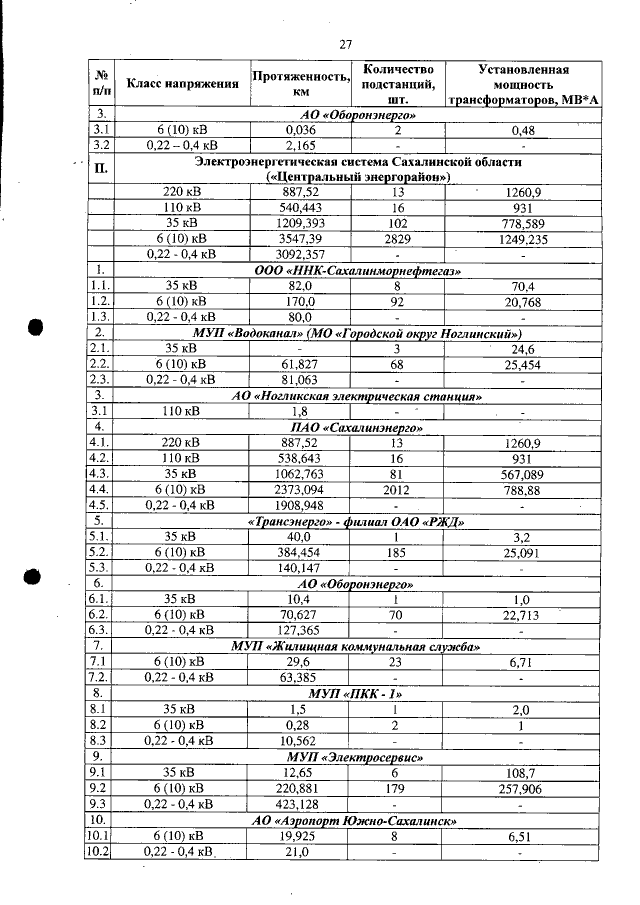 27
№ п/п Класс напряжения Протяженность, км Количество подстанций, шт. Установленная мощность трансформаторов, МВ*А
3. АО «Оборонэнерго»
3.1 6 (10) кВ 0,036 2 0,48
3.2 0,22 – 0,4 кВ 2,165 - -
II. Электроэнергетическая система Сахалинской области
(«Центральный энергорайон»)
220 кВ 887,52 13 1260,9
110 кВ 540,443 16 931
35 кВ 1209,393 102 778,589
6 (10) кВ 3547,39 2829 1249,235
0,22 - 0,4 кВ 3092,357 - -
1. ООО «ННК-Сахалинморнефтегаз»
1.1. 35 кВ 82,0 8 70,4
1.2. 6 (10) кВ 170,0 92 20,768
1.3. 0,22 - 0,4 кВ 80,0 - -
2. МУП «Водоканал» (МО «Городской округ Ноглинский»)
2.1. 35 кВ - 3 24,6
2.2. 6 (10) кВ 61,827 68 25,454
2.3. 0,22 - 0,4 кВ 81,063 - -
3. АО «Ногликская электрическая станция»
3.1 110 кВ 1,8 - -
4. ПАО «Сахалинэнерго»
4.1. 220 кВ 887,52 13 1260,9
4.2. 110 кВ 538,643 16 931
4.3. 35 кВ 1062,763 81 567,089
4.4. 6 (10) кВ 2373,094 2012 788,88
4.5. 0,22 - 0,4 кВ 1908,948 - -
5. «Трансэнерго» - филиал ОАО «РЖД»
5.1. 35 кВ 40,0 1 3,2
5.2. 6 (10) кВ 384,454 185 25,091
5.3. 0,22 - 0,4 кВ 140,147 - -
6. АО «Оборонэнерго»
6.1. 35 кВ 10,4 1 1,0
6.2. 6 (10) кВ 70,627 70 22,713
6.3. 0,22 - 0,4 кВ 127,365 - -
7. МУП «Жилищная коммунальная служба»
7.1 6 (10) кВ 29,6 23 6,71
7.2. 0,22 - 0,4 кВ 63,385 - -
8. МУП «ПКК - 1»
8.1 35 кВ 1,5 1 2,0
8.2 6 (10) кВ 0,28 2 1
8.3 0,22 - 0,4 кВ 10,562 - -
9. МУП «Электросервис»
9.1 35 кВ 12,65 6 108,7
9.2 6 (10) кВ 220,881 179 257,906
9.3 0,22 - 0,4 кВ 423,128 - -
10. АО «Аэропорт Южно-Сахалинск»
10.1 6 (10) кВ 19,925 8 6,51
10.2 0,22 - 0,4 кВ 21,0 - -